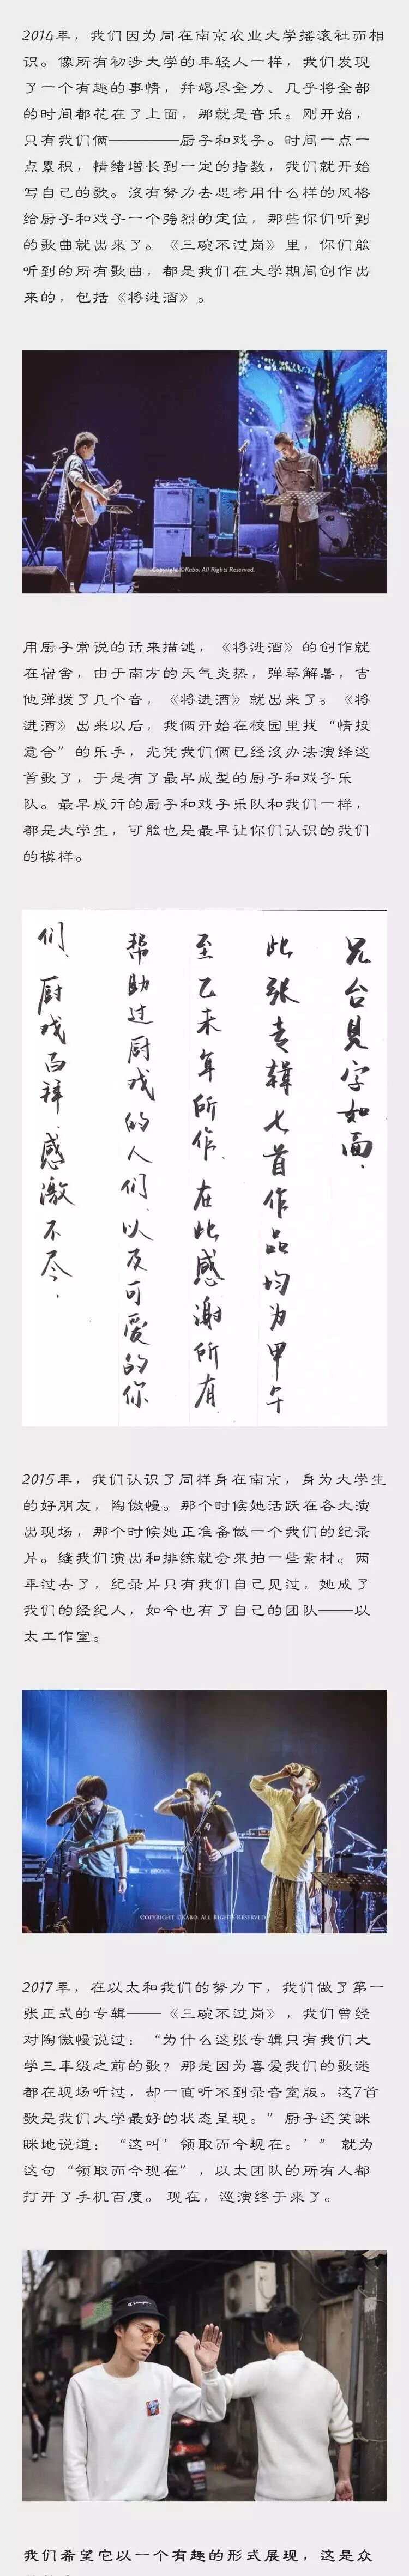 2014年，我们因为同在南京农业大学摇滚社而相
识。像所有初涉大学的年轻人一样，我们发现
了一个有趣的事情，并竭尽全力、几乎将全部
的时间都花在了上面，那就是音乐。刚开始，
只有我们俩————厨子和戏子。时间一点一
点累积，情绪增长到一定的指数，我们就开始
写自己的歌。没有努力去思考用什么样的风格
给厨子和戏子一个强烈的定位，那些你们听到
的歌曲就出来了。《三碗不过岗》里，你们能
听到的所有歌曲，都是我们在大学期间创作出
来的，包括《将进酒》。
Copyright ©Kabo. All Rights Reserved.
用厨子常说的话来描述，《将进酒》的创作就
在宿舍，由于南方的天气炎热，弹琴解暑，吉
他弹拨了几个音，《将进酒》就出来了。《将
进酒》出来以后，我俩开始在校园里找“情投
意合”的乐手，光凭我们俩已经没办法演绎这
首歌了，于是有了最早成型的厨子和戏子乐
队。最早成行的厨子和戏子乐队和我们一样，
都是大学生，可能也是最早让你们认识的我们
的模样。
兄台見字如面、
此张专辑七首作品均为甲午
至乙未年所作、在此感谢所有
帮助过厨戏的人们、以及可爱的你
们、厨戏百拜、感激不尽、
2015年，我们认识了同样身在南京，身为大学生
的好朋友，陶傲慢。那个时候她活跃在各大演
出现场，那个时候她正准备做一个我们的纪录
片。缝我们演出和排练就会来拍一些素材。两
年过去了，纪录片只有我们自己见过，她成了
我们的经纪人，如今也有了自己的团队——以
太工作室。
COPYRIGHT ©KABO. ALL RIGHTS RESERVED
2017年，在以太和我们的努力下，我们做了第一
张正式的专辑——《三碗不过岗》，我们曾经
对陶傲慢说过：“为什么这张专辑只有我们大
学三年级之前的歌？那是因为喜爱我们的歌迷
都在现场听过，却一直听不到录音室版。这7首
歌是我们大学最好的状态呈现。”厨子还笑眯
眯地说道：“这叫’领取而今现在。’”就为
这句“领取而今现在”，以太团队的所有人都
打开了手机百度。现在，巡演终于来了。
Champion
我们希望它以一个有趣的形式展现，这是众